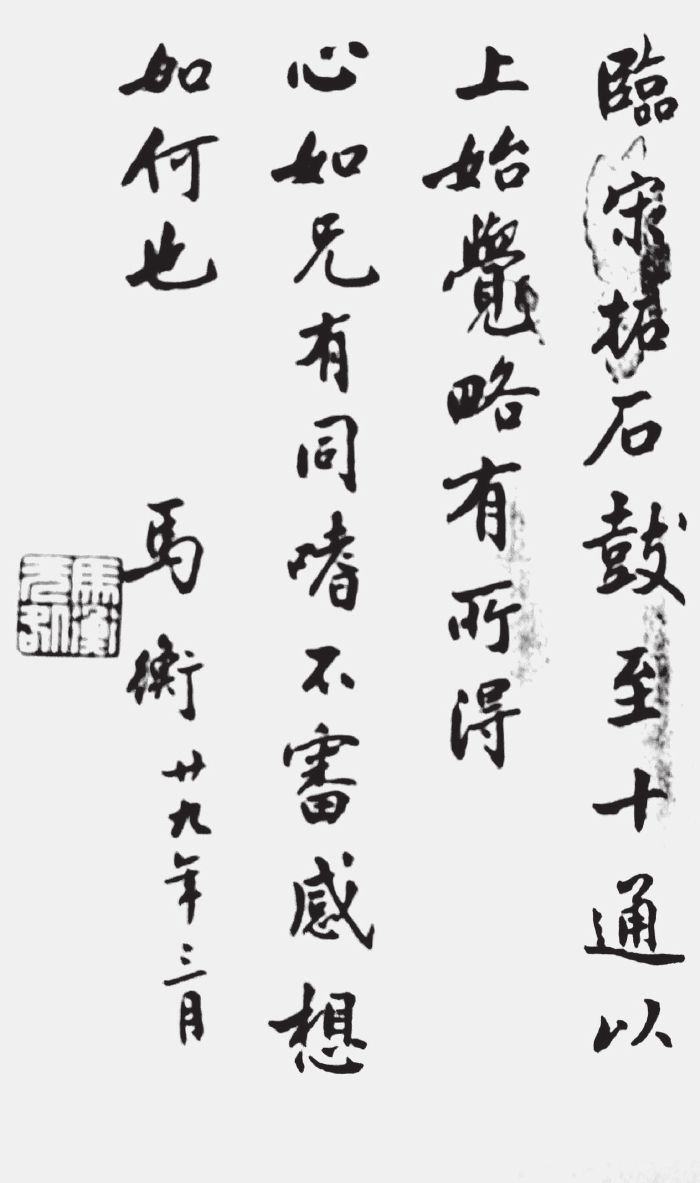 臨宋拓石鼓至十通以
上始覺略有所得
心如兄有同嗜不審感想
如何也
馬衡廿九年三月